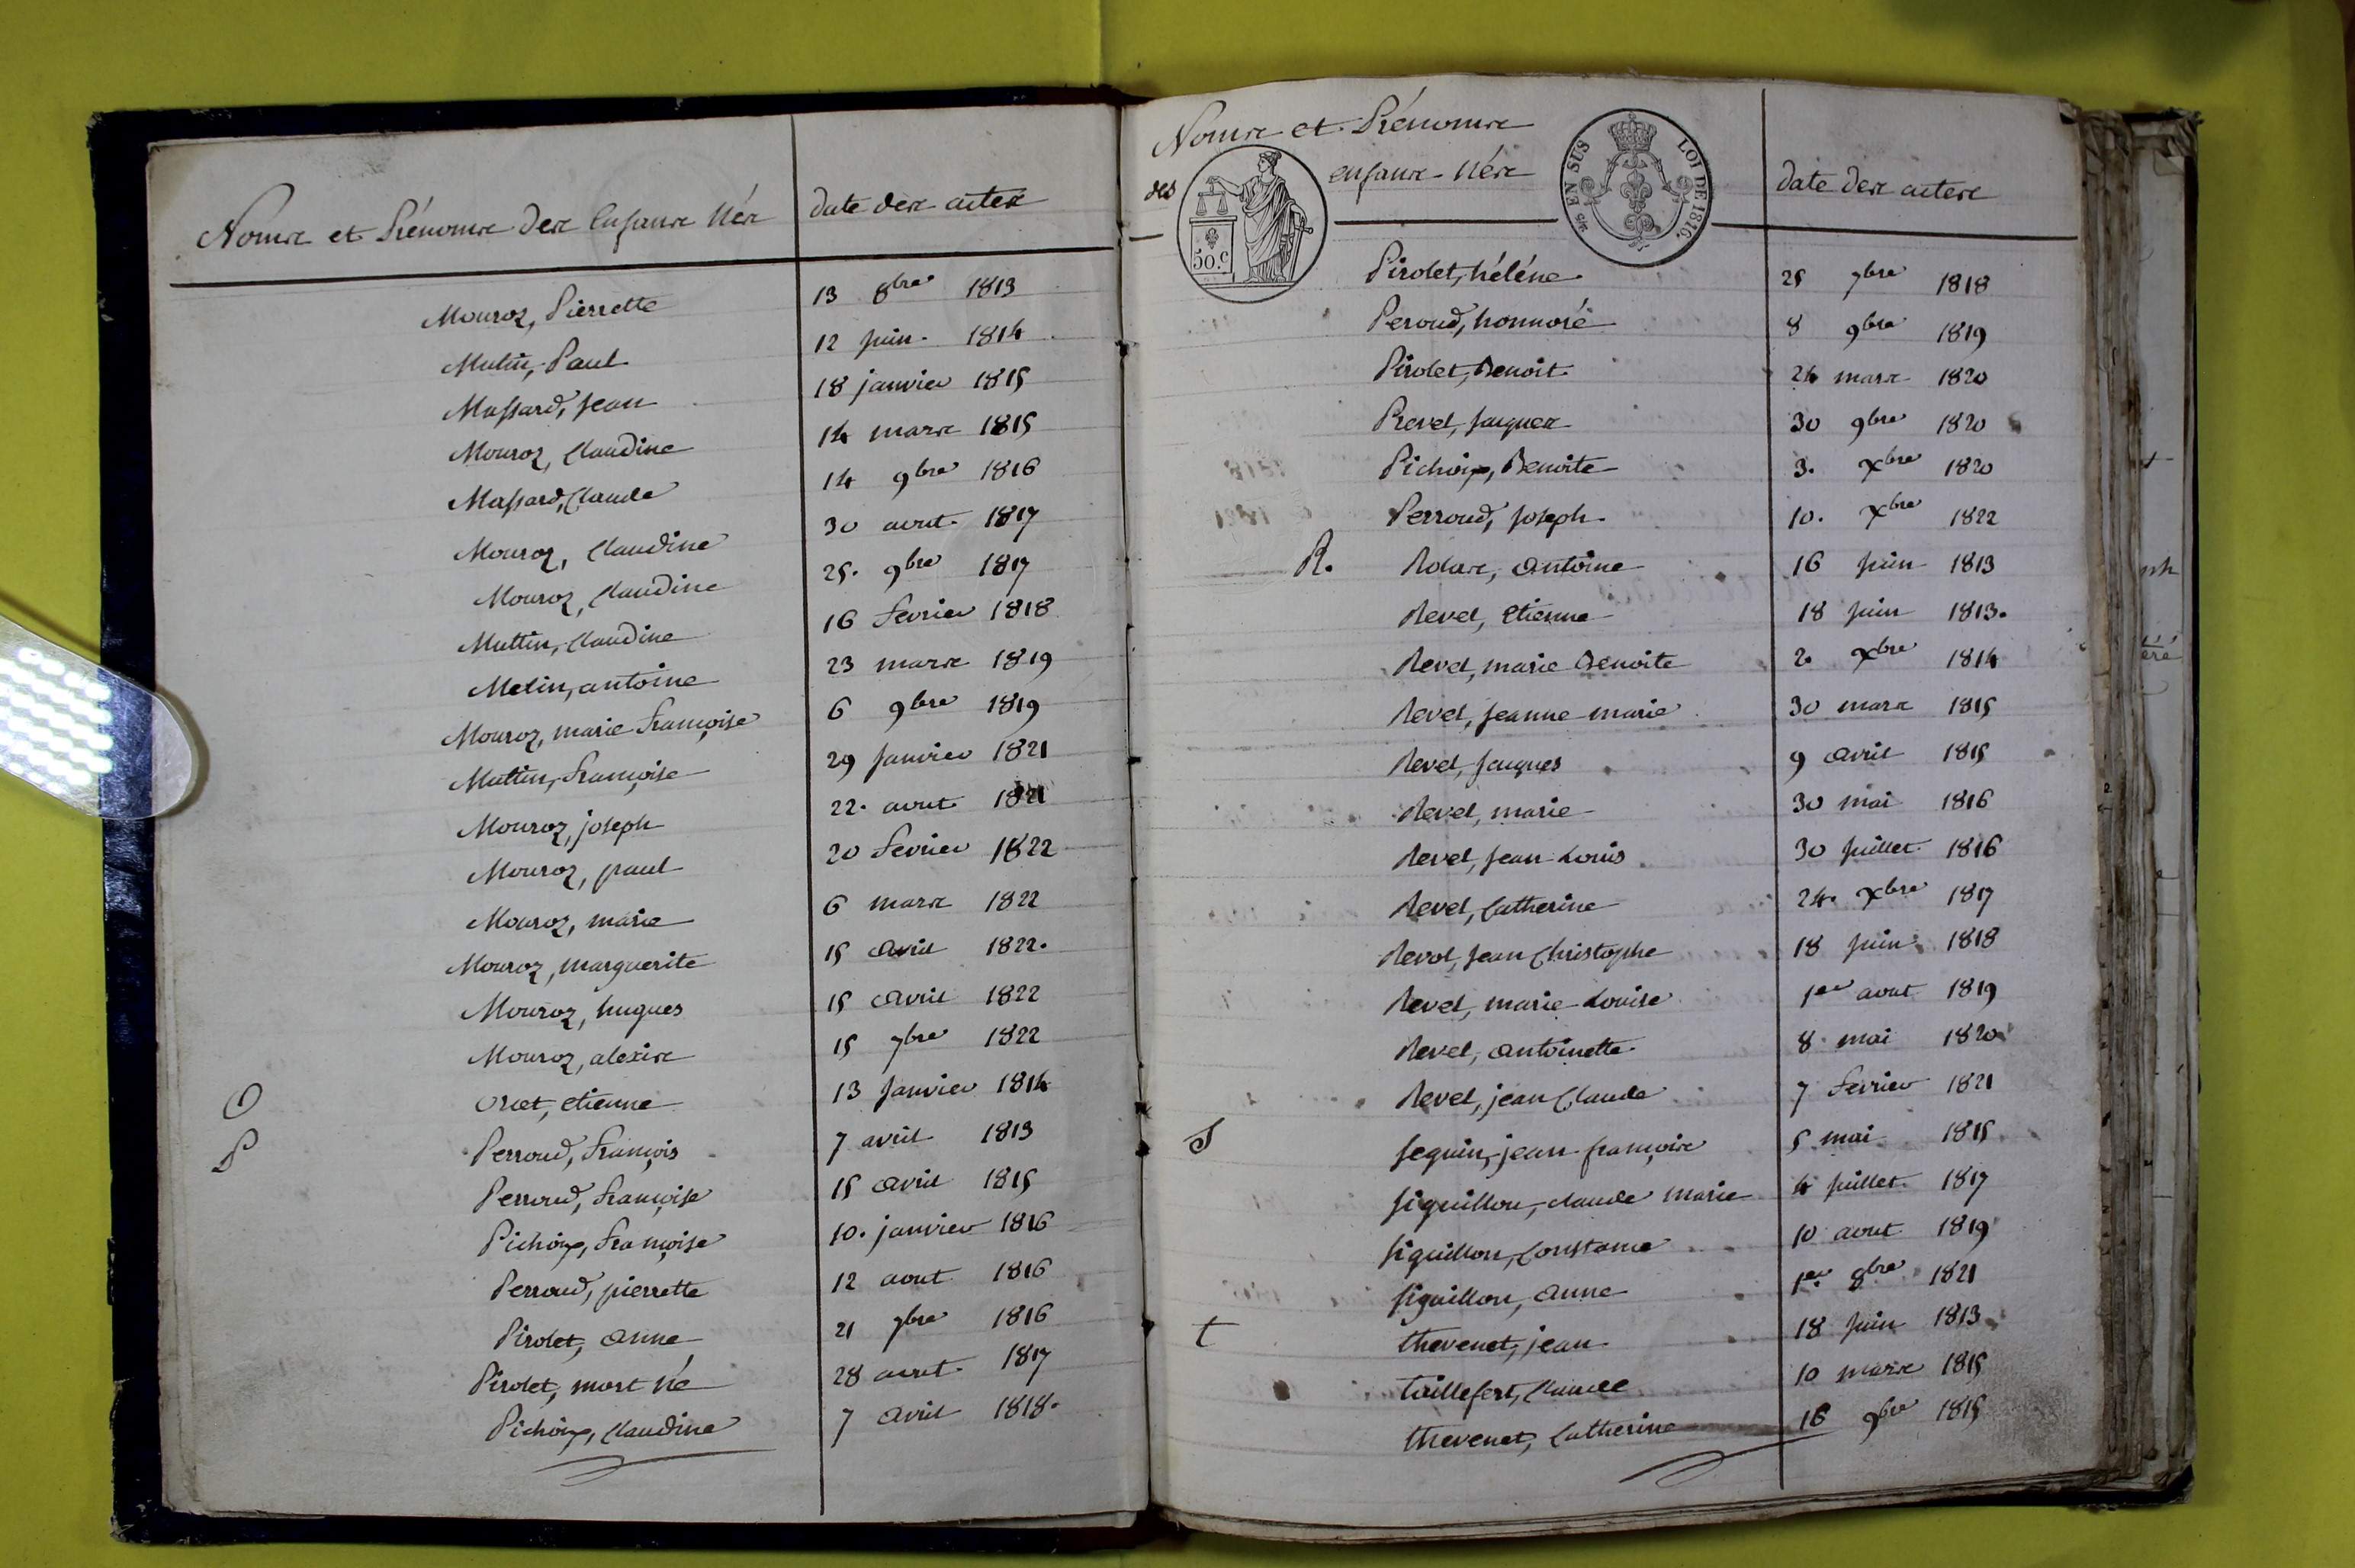 Noms et Prénoms des Enfans Nés
date des actes
Mouroz, Pierrette 13 8bre 1813
Mutin, Paul 12 juin 1814
Massard, Jean 18 janvier 1815
Mouroz, Claudine 14 mars 1815
Massard, Claude 14 9bre 1816
Mouroz, Claudine 30 aout 1817
Mouroz, Claudine 25. 9bre 1817
Muttin, Claudine 16 fevrier 1818
Metin, antoine 23 mars 1819
Mouroz, marie Françoise 6 9bre 1819
Muttin, Françoise 29 Janvier 1821
Mouroz, joseph 22. aout 1821
Mouroz, paul 20 fevrier 1822
Mouroz, marie 6 mars 1822
Mouroz, marguerite 15 avril 1822.
Mouroz, hugues 15 avril 1822
Mouroz, alexis 15 7bre 1822
O etienne 13 Janvier 1814
P Perroud, François 7 avril 1813
Perroud, Françoise 15 avril 1815
Pichoix, Françoise 10. janvier 1816
Perroud, pierrette 12 aout 1816
Pirolet, anne 21 7bre 1816
Pirolet, mort né 28 aout 1817
Pichoix, Claudine 7 avril 1818.
Noms et Prénoms
des enfans Nés
date des actes
50.c
EN SUS LOI DE 1816.
Pirolet, héléne 25 7bre 1818
Peroud, honnoré 8 9bre 1819
Pirolet, Benoit 24 mars 1820
Prevel, Jacques 30 9bre 1820
Pichoix, Benoite 3. Xbre 1820
Perroud, Joseph 10. Xbre 1822
R. Rolas, antoine 16 Juin 1813
Revel, Etienne 18 Juin 1813.
Revel, marie Benoite 2. Xbre 1814
Revel, jeanne marie 30 mars 1815
Revel, Jacques 9 avril 1815
Revel, marie 30 mai 1816
Revel, Jean Louis 30 Juillet 1816
Revel, Catherine 24. Xbre 1817
Revol, Jean Christophe 18 Juin 1818
Revel, marie Louise 1er aout 1819
Revel, antoinette 8 mai 1820
Revel, jean Claude 7 Fevrier 1821
S Seguin, jean françois 5 mai 1815
Siguillon, claude marie 4 Juillet 1817
Siguillon, Constance 10 aout 1819
Siguillon, anne 1er 8bre 1821
t thevenet, jean 18 Juin 1813
taillefert, Claude 10 mars 1815
thevenet, Catherine 16 9bre 1815